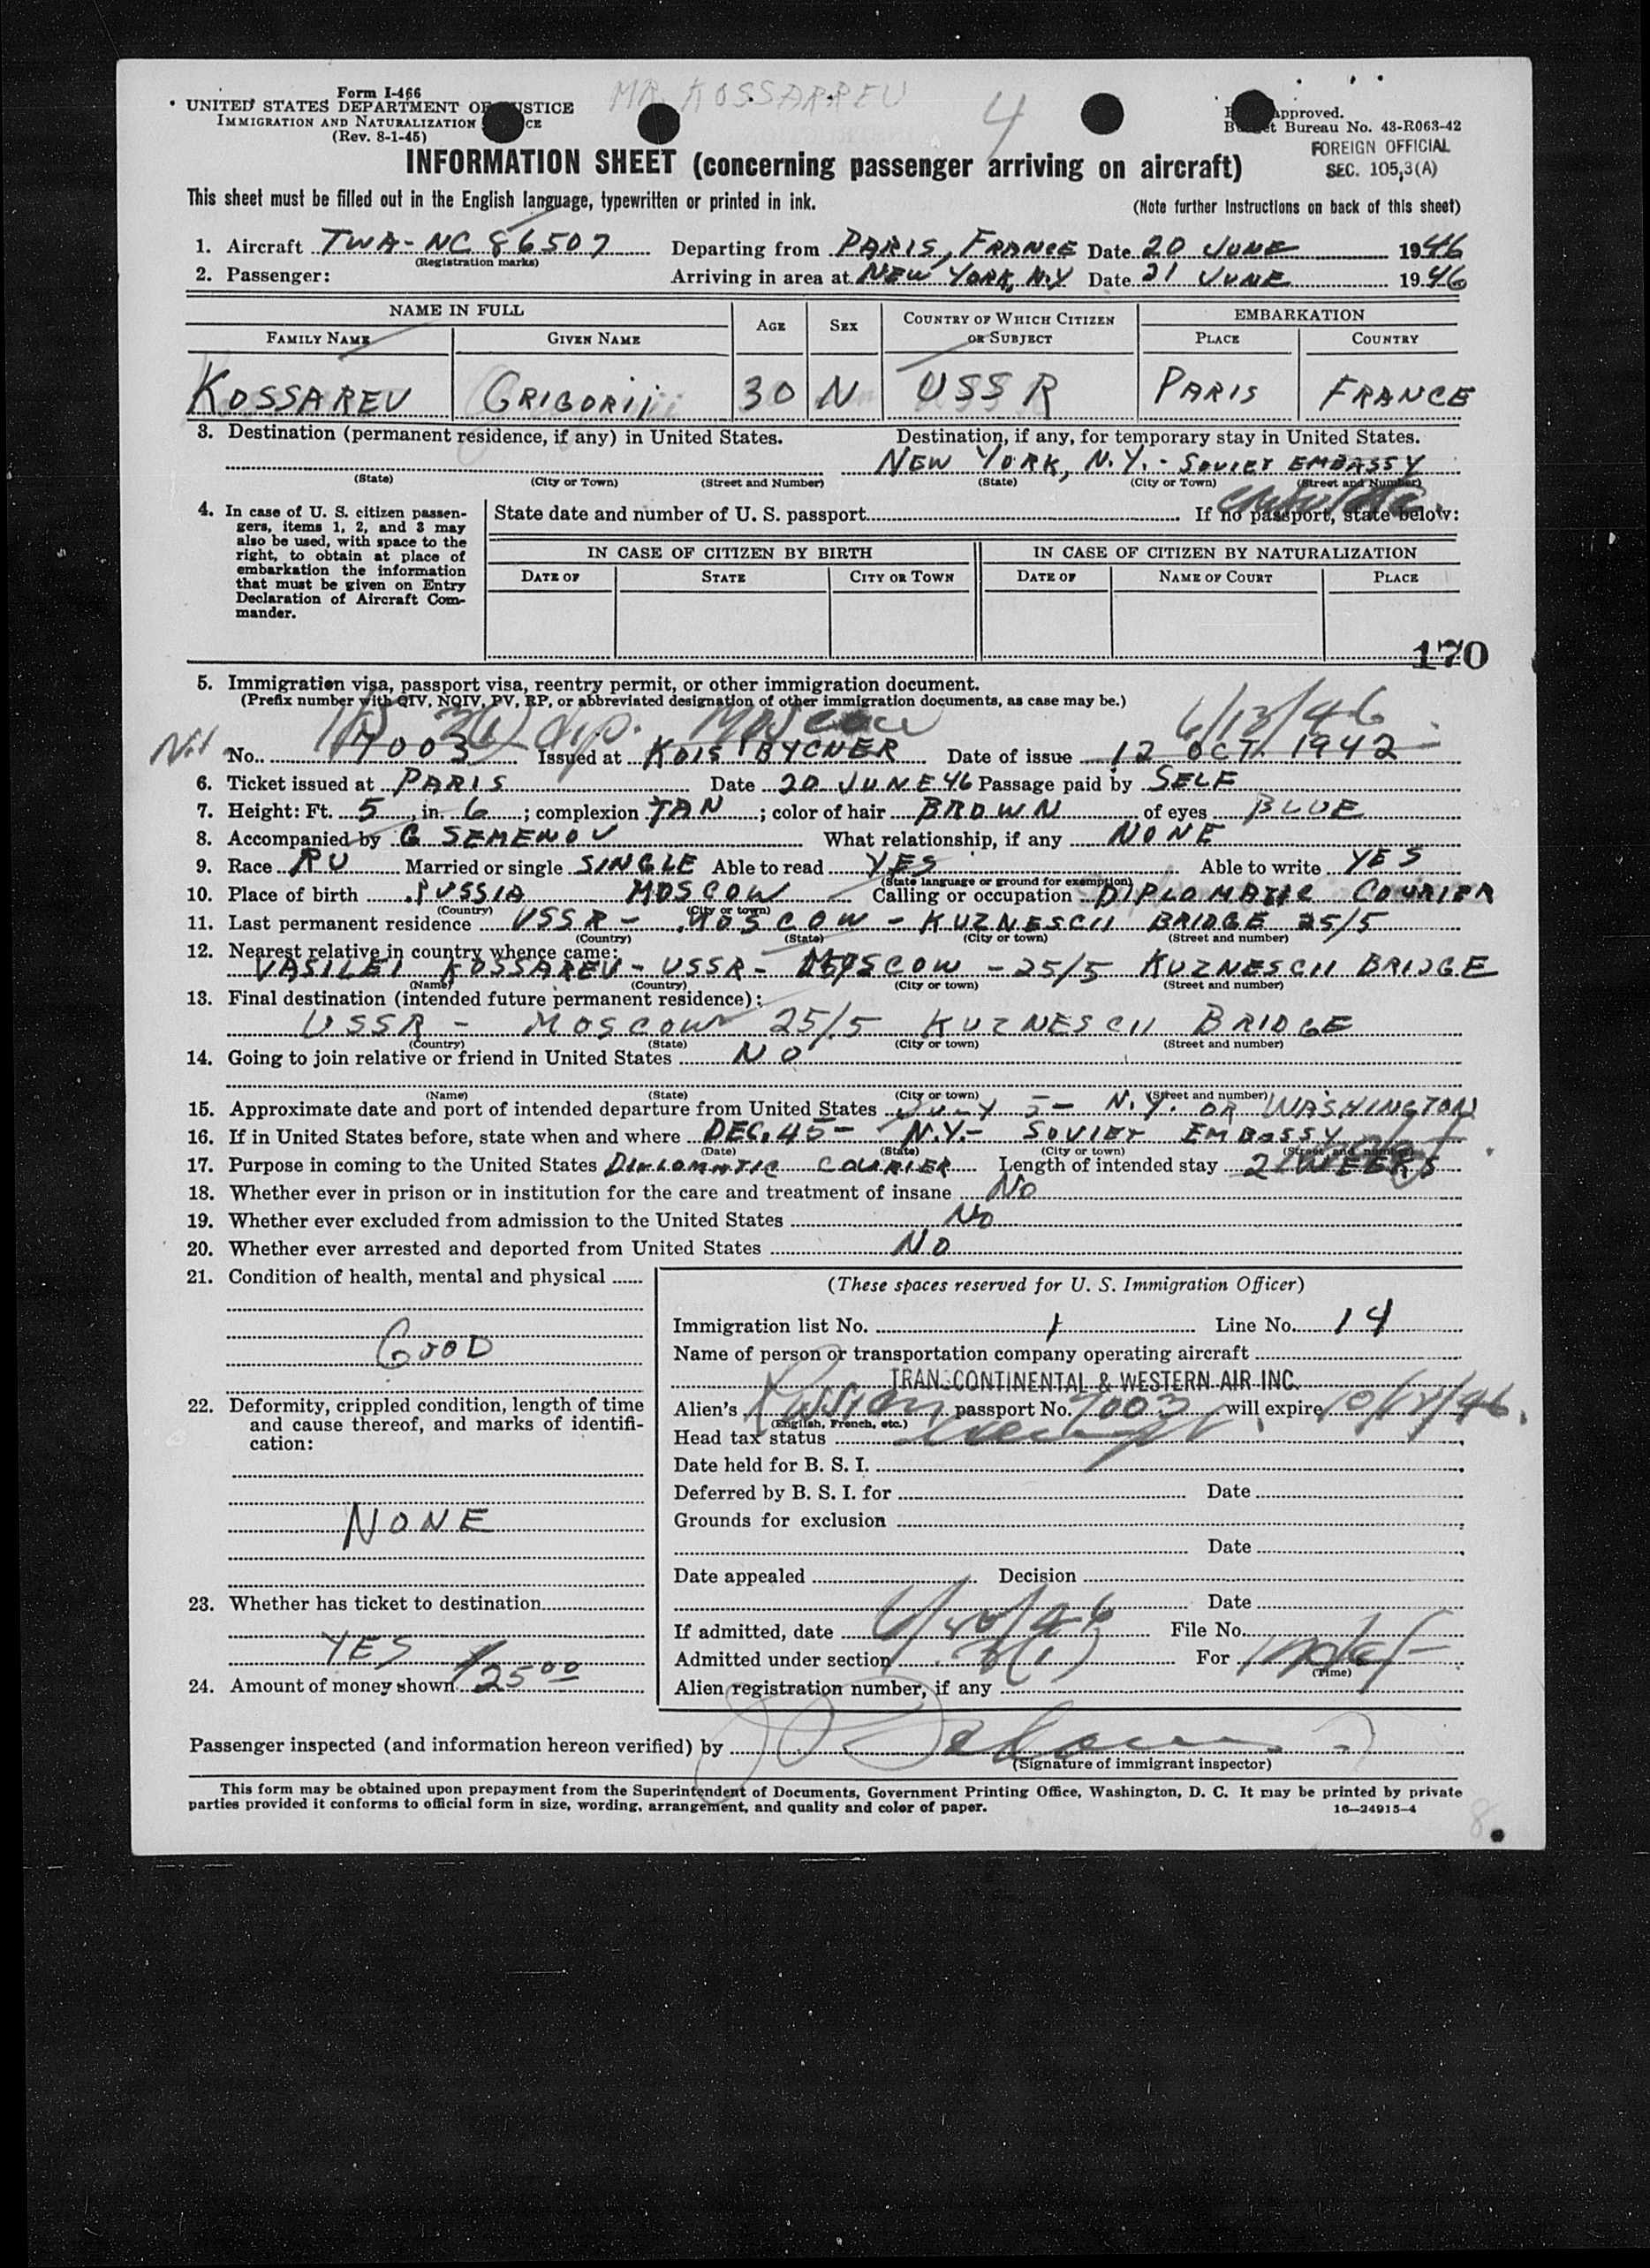 MR. KOSSARREU
4
Form I-466
UNITED STATES DEPARTMENT OF JUSTICE
IMMIGRATION AND NATURALIZATION CE
(Rev. 8-1-45)
approved.
Bureau No. 43-R063-42
FOREIGN OFFICIAL
SEC. 105,3(A)
INFORMATION SHEET (concerning passenger arriving on aircraft)
This sheet must be filled out in the English language, typewritten or printed in ink. (Note further instructions on back of this sheet)
1. Aircraft TWA-NC 86507 Departing from PARIS, FRANCE Date 20 JUNE 1946
(Registration marks)
2. Passenger: Arriving in area at NEW YORK, N.Y Date 21 JUNE 1946
NAME IN FULL AGE SEX COUNTRY OF WHICH CITIZEN OR SUBJECT EMBARKATION
FAMILY NAME GIVEN NAME PLACE COUNTRY
KOSSAREV GRIGORII 30 N USSR PARIS FRANCE
3. Destination (permanent residence, if any) in United States. Destination, if any, for temporary stay in United States.
NEW YORK, N.Y. - SOVIET EMBASSY
(State) (City or Town) (Street and Number) (State) (City or Town) (Street and Number)
4. In case of U. S. citizen passengers, items 1, 2, and 3 may also be used, with space to the right, to obtain at place of embarkation the information that must be given on Entry Declaration of Aircraft Commander.
State date and number of U. S. passport If no passport, state below:
IN CASE OF CITIZEN BY BIRTH IN CASE OF CITIZEN BY NATURALIZATION
DATE OF STATE CITY OR TOWN DATE OF NAME OF COURT PLACE
170
5. Immigration visa, passport visa, reentry permit, or other immigration document.
(Prefix number with QIV, NQIV, PV, RP, or abbreviated designation of other immigration documents, as case may be.)
3(1) dip. Moscow 6/13/46
No. 7003 Issued at KUIS BYCHER Date of issue 12 OCT. 1942
6. Ticket issued at PARIS Date 20 JUNE 46 Passage paid by SELF
7. Height: Ft. 5 in. 6 ; complexion TAN ; color of hair BROWN of eyes BLUE
8. Accompanied by G SEMENOV What relationship, if any NONE
9. Race RU Married or single SINGLE Able to read YES Able to write YES
(State language or ground for exemption)
10. Place of birth RUSSIA MOSCOW Calling or occupation DIPLOMATIC COURIER
(Country) (City or town)
11. Last permanent residence USSR - MOSCOW - KUZNESCII BRIDGE 25/5
(Country) (State) (City or town) (Street and number)
12. Nearest relative in country whence came:
VASILEI KOSSAREV - USSR - MOSCOW - 25/5 KUZNESCII BRIDGE
(Name) (Country) (City or town) (Street and number)
13. Final destination (intended future permanent residence):
USSR - MOSCOW 25/5 KUZNESCII BRIDGE
(Country) (State) (City or town) (Street and number)
14. Going to join relative or friend in United States NO
(Name) (State) (City or town) (Street and number)
15. Approximate date and port of intended departure from United States JULY 5 - N.Y. OR WASHINGTON
16. If in United States before, state when and where DEC. 45 - N.Y. - SOVIET EMBASSY
(Date) (State) (City or town) (Street and number)
17. Purpose in coming to the United States DIPLOMATIC COURIER Length of intended stay 2 WEEKS
18. Whether ever in prison or in institution for the care and treatment of insane No
19. Whether ever excluded from admission to the United States No
20. Whether ever arrested and deported from United States NO
21. Condition of health, mental and physical
GOOD
22. Deformity, crippled condition, length of time and cause thereof, and marks of identification:
NONE
23. Whether has ticket to destination
YES
24. Amount of money shown $125.00
(These spaces reserved for U. S. Immigration Officer)
Immigration list No. 1 Line No. 14
Name of person or transportation company operating aircraft
TRANSCONTINENTAL & WESTERN AIR INC.
Alien's Russian passport No. 7003 will expire 10/12/46.
(English, French, etc.)
Head tax status
Date held for B. S. I.
Deferred by B. S. I. for Date
Grounds for exclusion
Date
Date appealed Decision
Date
If admitted, date File No.
Admitted under section 3(1) For
(Time)
Alien registration number, if any
Passenger inspected (and information hereon verified) by
(Signature of immigrant inspector)
This form may be obtained upon prepayment from the Superintendent of Documents, Government Printing Office, Washington, D. C. It may be printed by private
parties provided it conforms to official form in size, wording, arrangement, and quality and color of paper. 16—24915-4
8